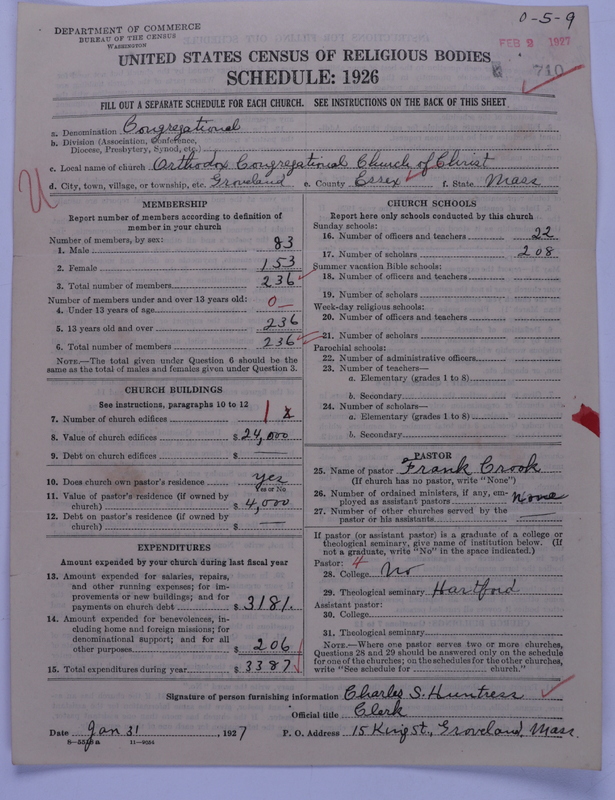 0-5-9
DEPARTMENT OF COMMERCE
BUREAU OF THE CENSUS
WASHINGTON
FEB 2 1927
710
UNITED STATES CENSUS OF RELIGIOUS BODIES
SCHEDULE: 1926
FILL OUT A SEPARATE SCHEDULE FOR EACH CHURCH. SEE INSTRUCTIONS ON THE BACK OF THIS SHEET
a. Denomination Congregational
b. Division (Association, Conference,
Diocese, Presbytery, Synod, etc.)
c. Local name of church Orthodox Congregational Church of Christ
d. City, town, village, or township, etc. Groveland e. County Essex f. State Mass
MEMBERSHIP
Report number of members according to definition of
member in your church
Number of members, by sex:
1. Male 83
2. Female 153
3. Total number of members 236
Number of members under and over 13 years old:
4. Under 13 years of age 0
5. 13 years old and over 236
6. Total number of members 236
NOTE.—The total given under Question 6 should be the
same as the total of males and females given under Question 3.
CHURCH BUILDINGS
See instructions, paragraphs 10 to 12
7. Number of church edifices 1
8. Value of church edifices $ 24,000
9. Debt on church edifices $ —
10. Does church own pastor's residence yes
Yes or No
11. Value of pastor's residence (if owned by
church) $ 4,000
12. Debt on pastor's residence (if owned by
church) $ —
EXPENDITURES
Amount expended by your church during last fiscal year
13. Amount expended for salaries, repairs,
and other running expenses; for im-
provements or new buildings; and for
payments on church debt $ 3181.
14. Amount expended for benevolences, in-
cluding home and foreign missions; for
denominational support; and for all
other purposes $ 206
15. Total expenditures during year $ 3387
CHURCH SCHOOLS
Report here only schools conducted by this church
Sunday schools:
16. Number of officers and teachers 22
17. Number of scholars 208
Summer vacation Bible schools:
18. Number of officers and teachers
19. Number of scholars
Week-day religious schools:
20. Number of officers and teachers
21. Number of scholars
Parochial schools:
22. Number of administrative officers
23. Number of teachers—
a. Elementary (grades 1 to 8)
b. Secondary
24. Number of scholars—
a. Elementary (grades 1 to 8)
b. Secondary
PASTOR
25. Name of pastor Frank Crook
(If church has no pastor, write "None")
26. Number of ordained ministers, if any, em-
ployed as assistant pastors None
27. Number of other churches served by the
pastor or his assistants
If pastor (or assistant pastor) is a graduate of a college or
theological seminary, give name of institution below. (If
not a graduate, write "No" in the space indicated.)
Pastor: 4
28. College No
29. Theological seminary Hartford
Assistant pastor:
30. College
31. Theological seminary
NOTE.—Where one pastor serves two or more churches,
Questions 28 and 29 should be answered only on the schedule
for one of the churches; on the schedules for the other churches,
write "See schedule for church."
Signature of person furnishing information Charles S. Huntress
Official title Clerk
Date Jan 31, 1927 P. O. Address 15 King St., Groveland, Mass.
11-9034